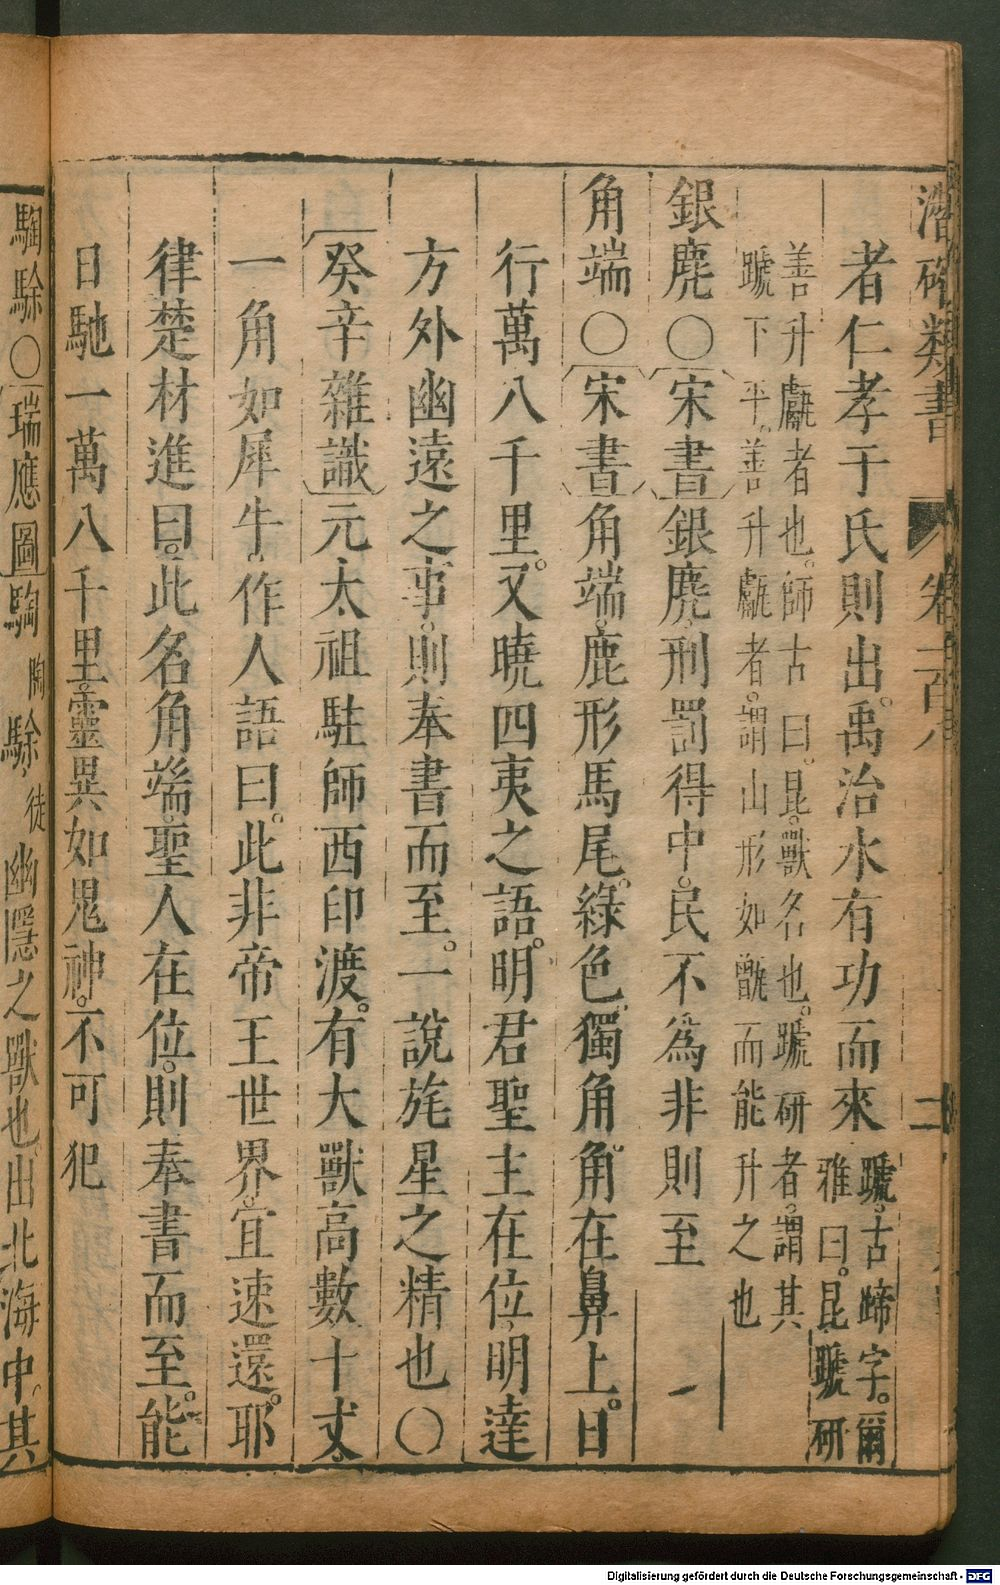 潛確類書 卷一百八 二
者仁孝于氏則出。禹治水有功而來
蹏。古蹄字。爾
雅曰。昆蹏研
善升甗者也。師古曰。昆。獸名也。蹏研者。謂其
蹏下平。善升甗者。謂山形如甑而能升之也
銀麂〇宋書銀麂。刑罰得中。民不為非則至
角端〇宋書角端。鹿形馬尾。綠色。獨角。角在鼻上。日
行萬八千里。又曉四夷之語。明君聖主在位。明達
方外幽遠之事。則奉書而至。一說旄星之精也〇
癸辛雜識元太祖駐師西印渡。有大獸高數十丈。
一角如犀牛。作人語曰。此非帝王世界。宜速還。耶
律楚材進曰。此名角端。聖人在位。則奉書而至。能
日馳一萬八千里。靈異如鬼神。不可犯
騊駼〇瑞應圖騊陶駼徒幽隱之獸也。出北海中。其
Digitalisierung gefördert durch die Deutsche Forschungsgemeinschaft - DFG